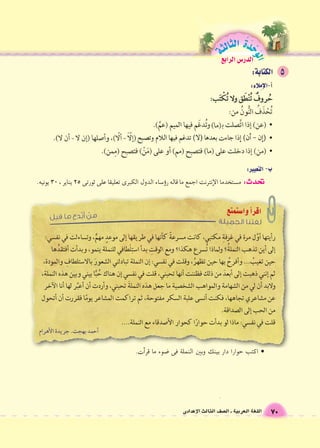 الوحدة الثالثة
الدرس الرابع
٥ الكتابة:
أ- الإملاء:
حُروفٌ تُنْطَق ولا تُكْتَب:
تُحْذَفُ النُّون من:
• (عن) إذا اتَّصلت بـ(ما) وتُدْغَم فيها الميم (عمَّ).
• (إن – أن) إذا جاءت بعدها (لا) تدغم فيها اللام وتصبح (إلَّا - ألَّا)، وأصلها (إن لا - أن لا).
• (من) إذا دخلت على (ما) فتصبح (مم) أو على (مَنْ) فتصبح (ممن).
ب- التعبير:
تحدث: مستخدما الإنترنت اجمع ما قاله رؤساء الدول الكبرى تعليقا على ثورتى ٢٥ يناير ، ٣٠ يونيه.
اقرأ واستمتع
لغتنا الجميلة
من أبدع ما قيل
رأيتها أوَّل مرة فى غرفة مكتبى، كانت مسرعة كأنها فى طريقها إلى موعد مهمّ، وتساءلت فى نفسى:
إلى أين تذهب النملة؟ ولماذا تُسرع هكذا؟ ومع الوقت بدأ استلطافى للنملة ينمو، وبدأت أفتقدُها
حين تغيبُ... وأفرحُ بها حين تظهرُ، وقلت فى نفسى: إن النملة تبادلنى الشعورَ بالاستلطاف والمودة،
ثم إننى ذهبت إلى أبعدَ من ذلك فظننت أنها تحبنى، قلت فى نفسى إن هناك حُبًّا بينى وبين هذه النملة،
ولابد أن لى من الشهامة والمواهب الشخصية ما جعل هذه النملة تحبنى، وأردت أن أعبِّر لها أنا الآخر
عن مشاعرى تجاهها، فكنت أنسى علبة السكر مفتوحة، ثم تراكمت المشاعر يومًا فقررت أن أتحول
من الحب إلى الصداقة.
قلت فى نفسى: ماذا لو بدأت حوارًا كحوار الأصدقاء مع النملة....
أحمد بهجت. جريدة الأهرام
• اكتب حوارا دار بينك وبين النملة فى ضوء ما قرأت.
٧٠ اللغة العربية ـ الصف الثالث الإعدادى